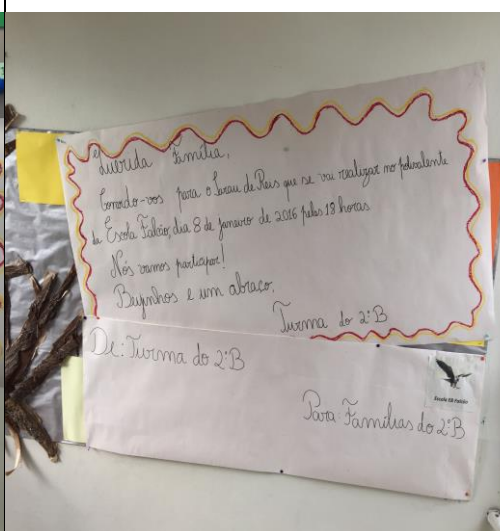 Querida família,
Convido-vos para o Sarau de Reis que se vai realizar no polivalente
da Escola Falcão, dia 8 de janeiro de 2016 pelas 18 horas
Nós vamos participar!
Beijinhos e um abraço,
Turma do 2ºB
De: Turma do 2ºB
Escola EB Falcão
Para: Famílias do 2ºB